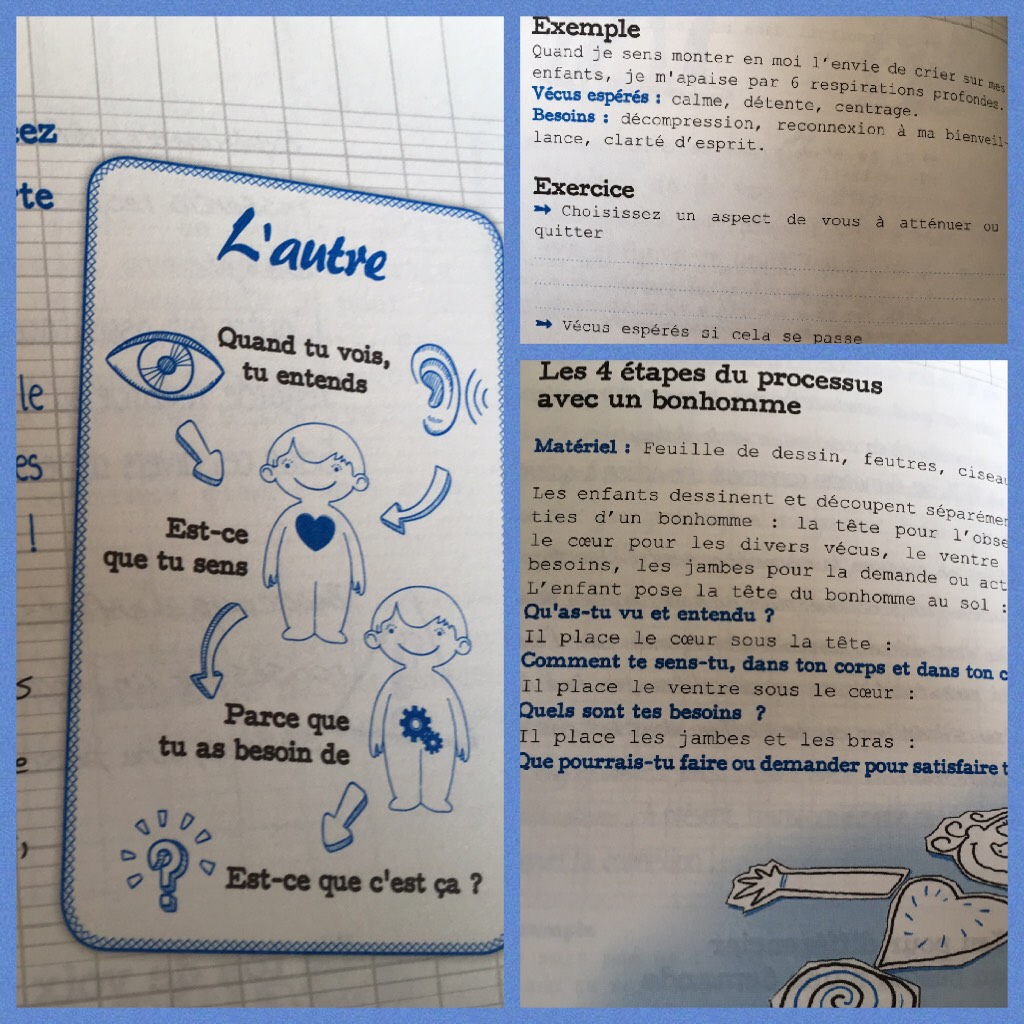 ez
te
le
es
!
s
L'autre
Quand tu vois,
tu entends
Est-ce
que tu sens
Parce que
tu as besoin de
?
Est-ce que c'est ça ?
Exemple
Quand je sens monter en moi l'envie de crier sur mes
enfants, je m'apaise par 6 respirations profondes.
Vécus espérés : calme, détente, centrage.
Besoins : décompression, reconnexion à ma bienveil-
lance, clarté d'esprit.
Exercice
➡ Choisissez un aspect de vous à atténuer ou
quitter
➡ Vécus espérés si cela se passe
Les 4 étapes du processus
avec un bonhomme
Matériel : Feuille de dessin, feutres, ciseau
Les enfants dessinent et découpent séparémen
ties d'un bonhomme : la tête pour l'obse
le cœur pour les divers vécus, le ventre
besoins, les jambes pour la demande ou act
L'enfant pose la tête du bonhomme au sol :
Qu'as-tu vu et entendu ?
Il place le cœur sous la tête :
Comment te sens-tu, dans ton corps et dans ton c
Il place le ventre sous le cœur :
Quels sont tes besoins ?
Il place les jambes et les bras :
Que pourrais-tu faire ou demander pour satisfaire t